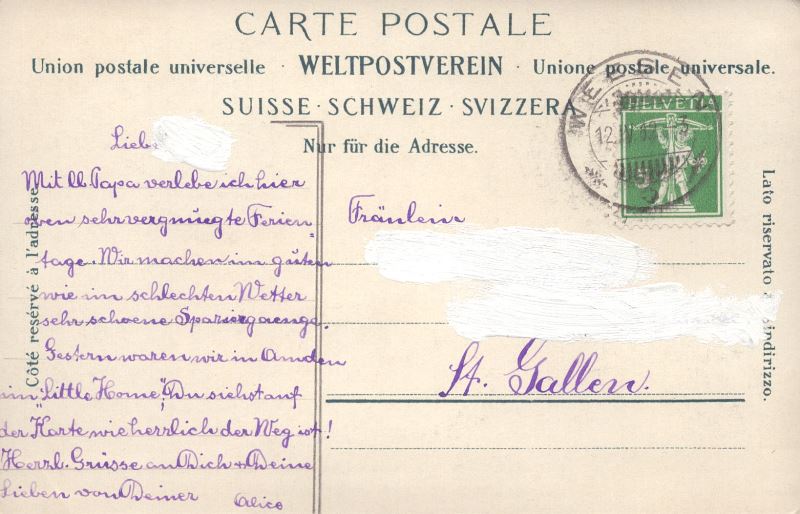 CARTE POSTALE
Union postale universelle · WELTPOSTVEREIN · Unione postale universale.
SUISSE · SCHWEIZ · SVIZZERA
Nur für die Adresse.
Côté resérvé à l'adresse
Lato riservato indirizzo.
WEESEN
12. IV
HELVETIA
5
Liebe
Mit lb. Papa verlebe ich hier
oben sehr vergnuegte Ferien-
tage. Wir machen im guten
wie im schlechten Wetter
sehr schoene Spaziergaenge.
Gestern waren wir in Amden
im "Little Home", Du siehst auf
der Karte wie herrlich der Weg ist!
Herzl. Grüsse an Dich + Deine
Lieben von Deiner
Alice
Fräulein
St. Gallen.